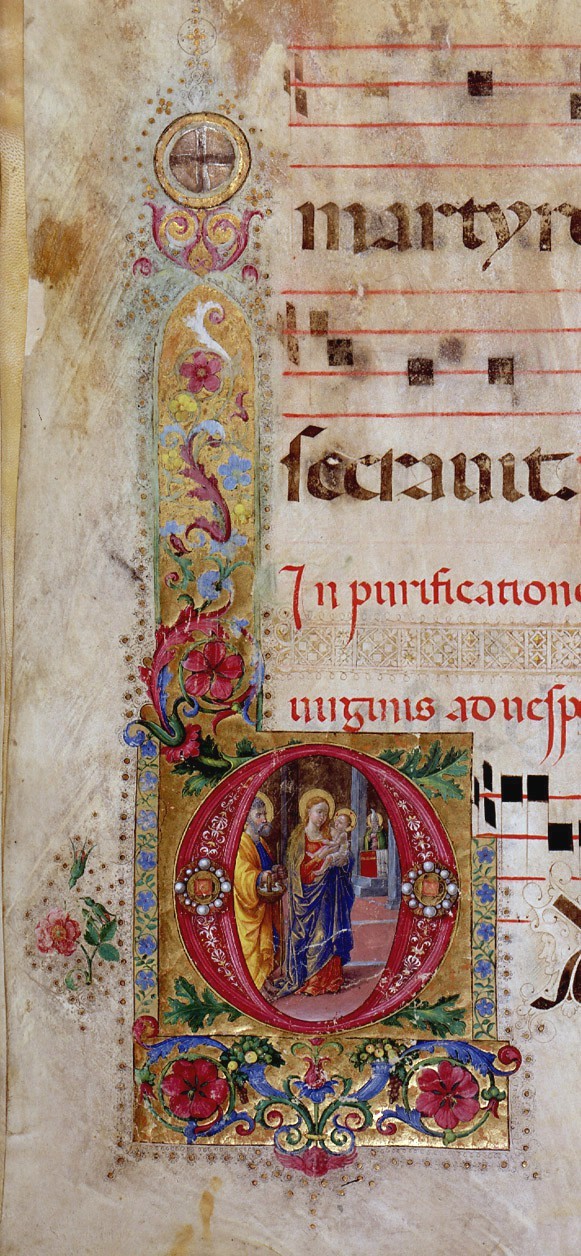 martyr
secravit.
In purification
virginis ad vesp
O